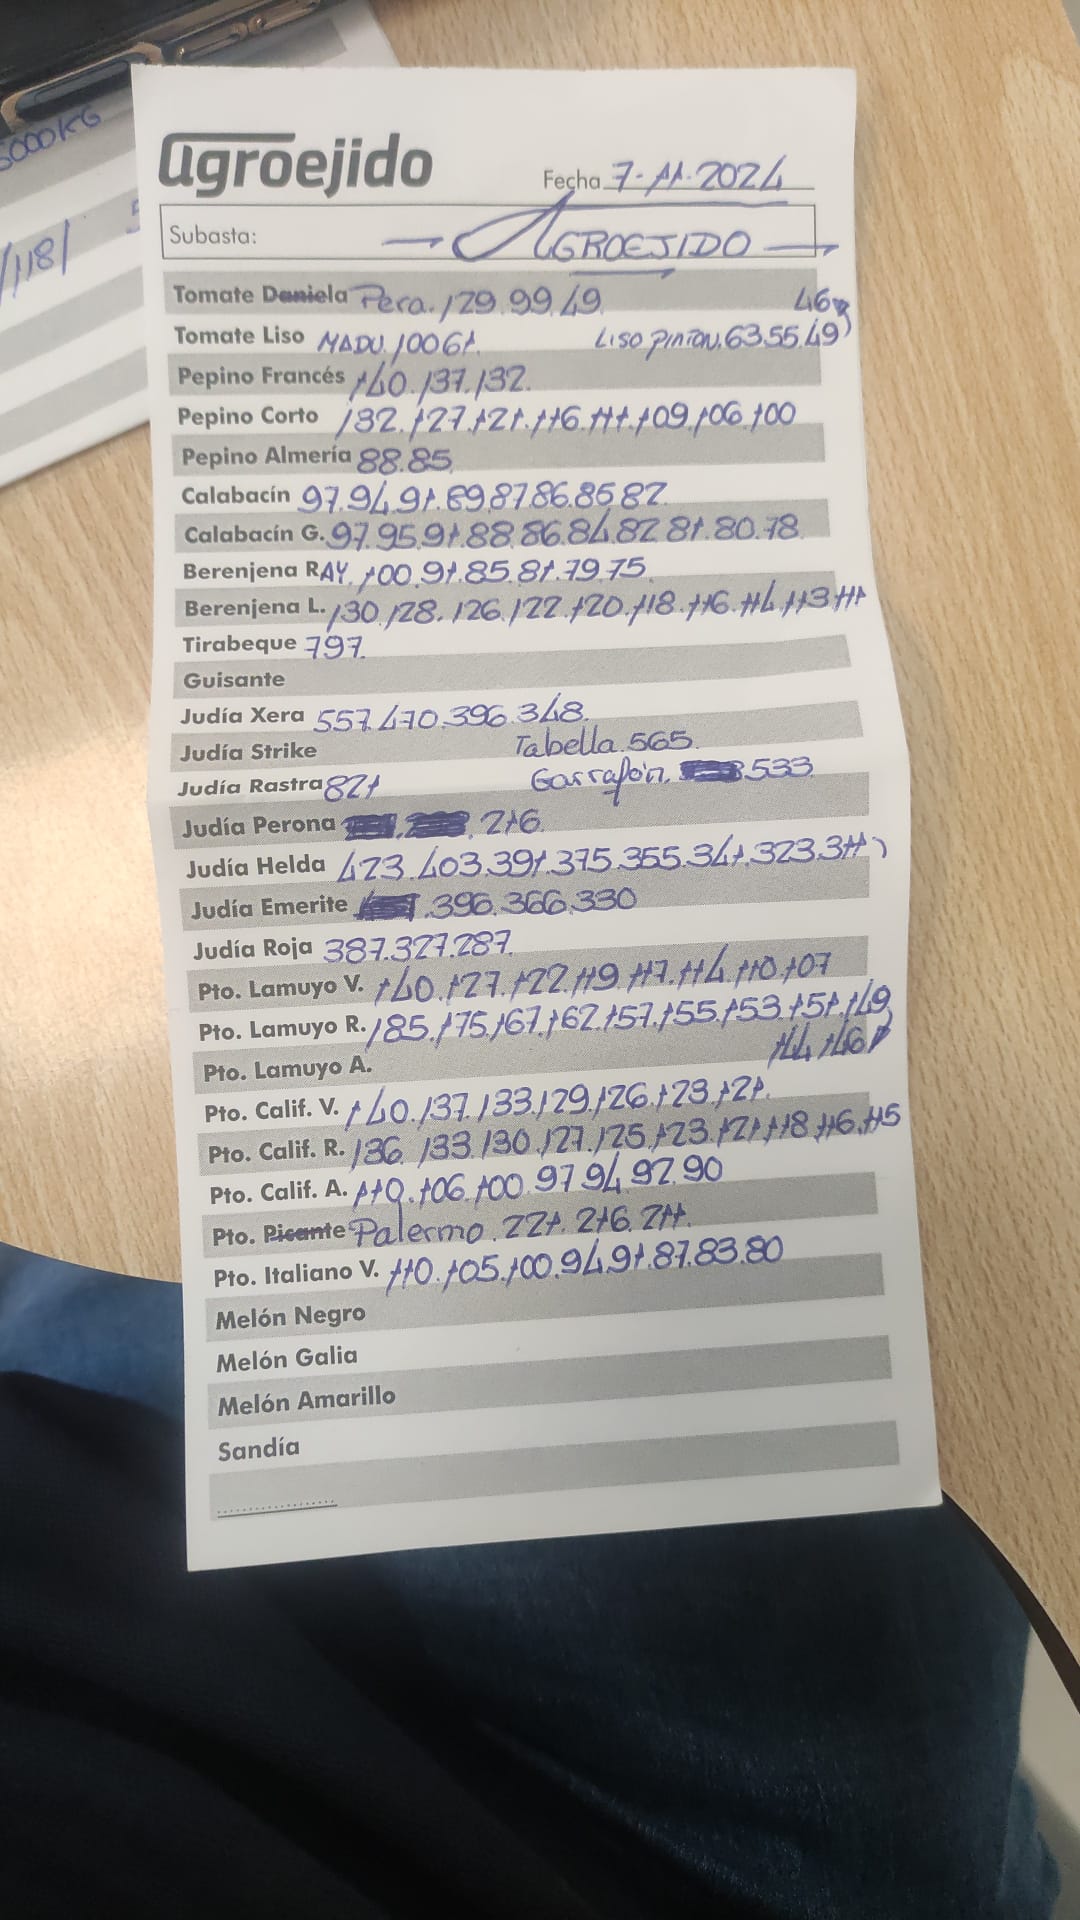 5000KG
/118/
agroejido
Fecha 7-11-2024
Subasta: AGROEJIDO
Tomate Daniela Pera. 129.99.49. 46
Tomate Liso MADU. 100.61. LISO PINTON. 63.55.49
Pepino Francés 140. 137. 132.
Pepino Corto 132. 127. 121. 116. 111. 109. 106. 100
Pepino Almería 88.85.
Calabacín 97.94.91.89.87.86.85.82.
Calabacín G. 97.95.91.88.86.84.82.81.80.78.
Berenjena RAY. 100.91.85.81.79.75.
Berenjena L. 130. 128. 126. 122. 120. 118. 116. 114. 113. 111
Tirabeque 797.
Guisante
Judía Xera 557.470.396.348.
Judía Strike Tabella. 565.
Judía Rastra 821 Garrafón. 533
Judía Perona 216.
Judía Helda 423.403.391.375.355.341.323.311
Judía Emerite 396.366.330
Judía Roja 387.327.287.
Pto. Lamuyo V. 140. 127. 122. 119. 117. 114. 110. 107
Pto. Lamuyo R. 185. 175. 167. 162. 157. 155. 153. 151. 149
Pto. Lamuyo A. 144. 146
Pto. Calif. V. 140. 137. 133. 129. 126. 123. 121.
Pto. Calif. R. 136. 133. 130. 127. 125. 123. 121. 118. 116. 115
Pto. Calif. A. 110. 106. 100. 97.94.92.90
Pto. Picante Palermo. 221. 216. 211.
Pto. Italiano V. 110. 105. 100. 94.91.87.83.80
Melón Negro
Melón Galia
Melón Amarillo
Sandía